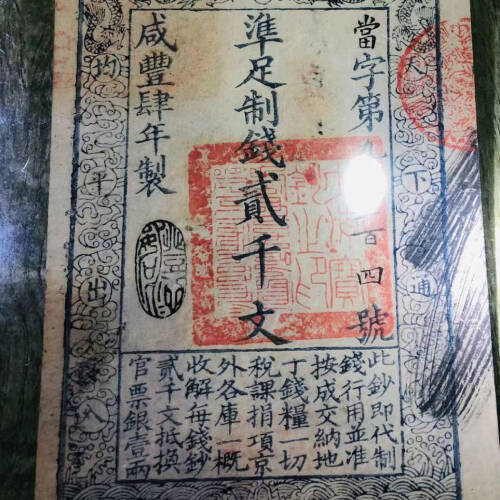 天下通
當字第九百四號
準足制錢貳千文
咸豐肆年製
均平出入
此鈔即代制
錢行用並准
按成交納地
丁錢糧一切
稅課捐項京
外各庫一概
收解每錢鈔
貳千文抵換
官票銀壹兩